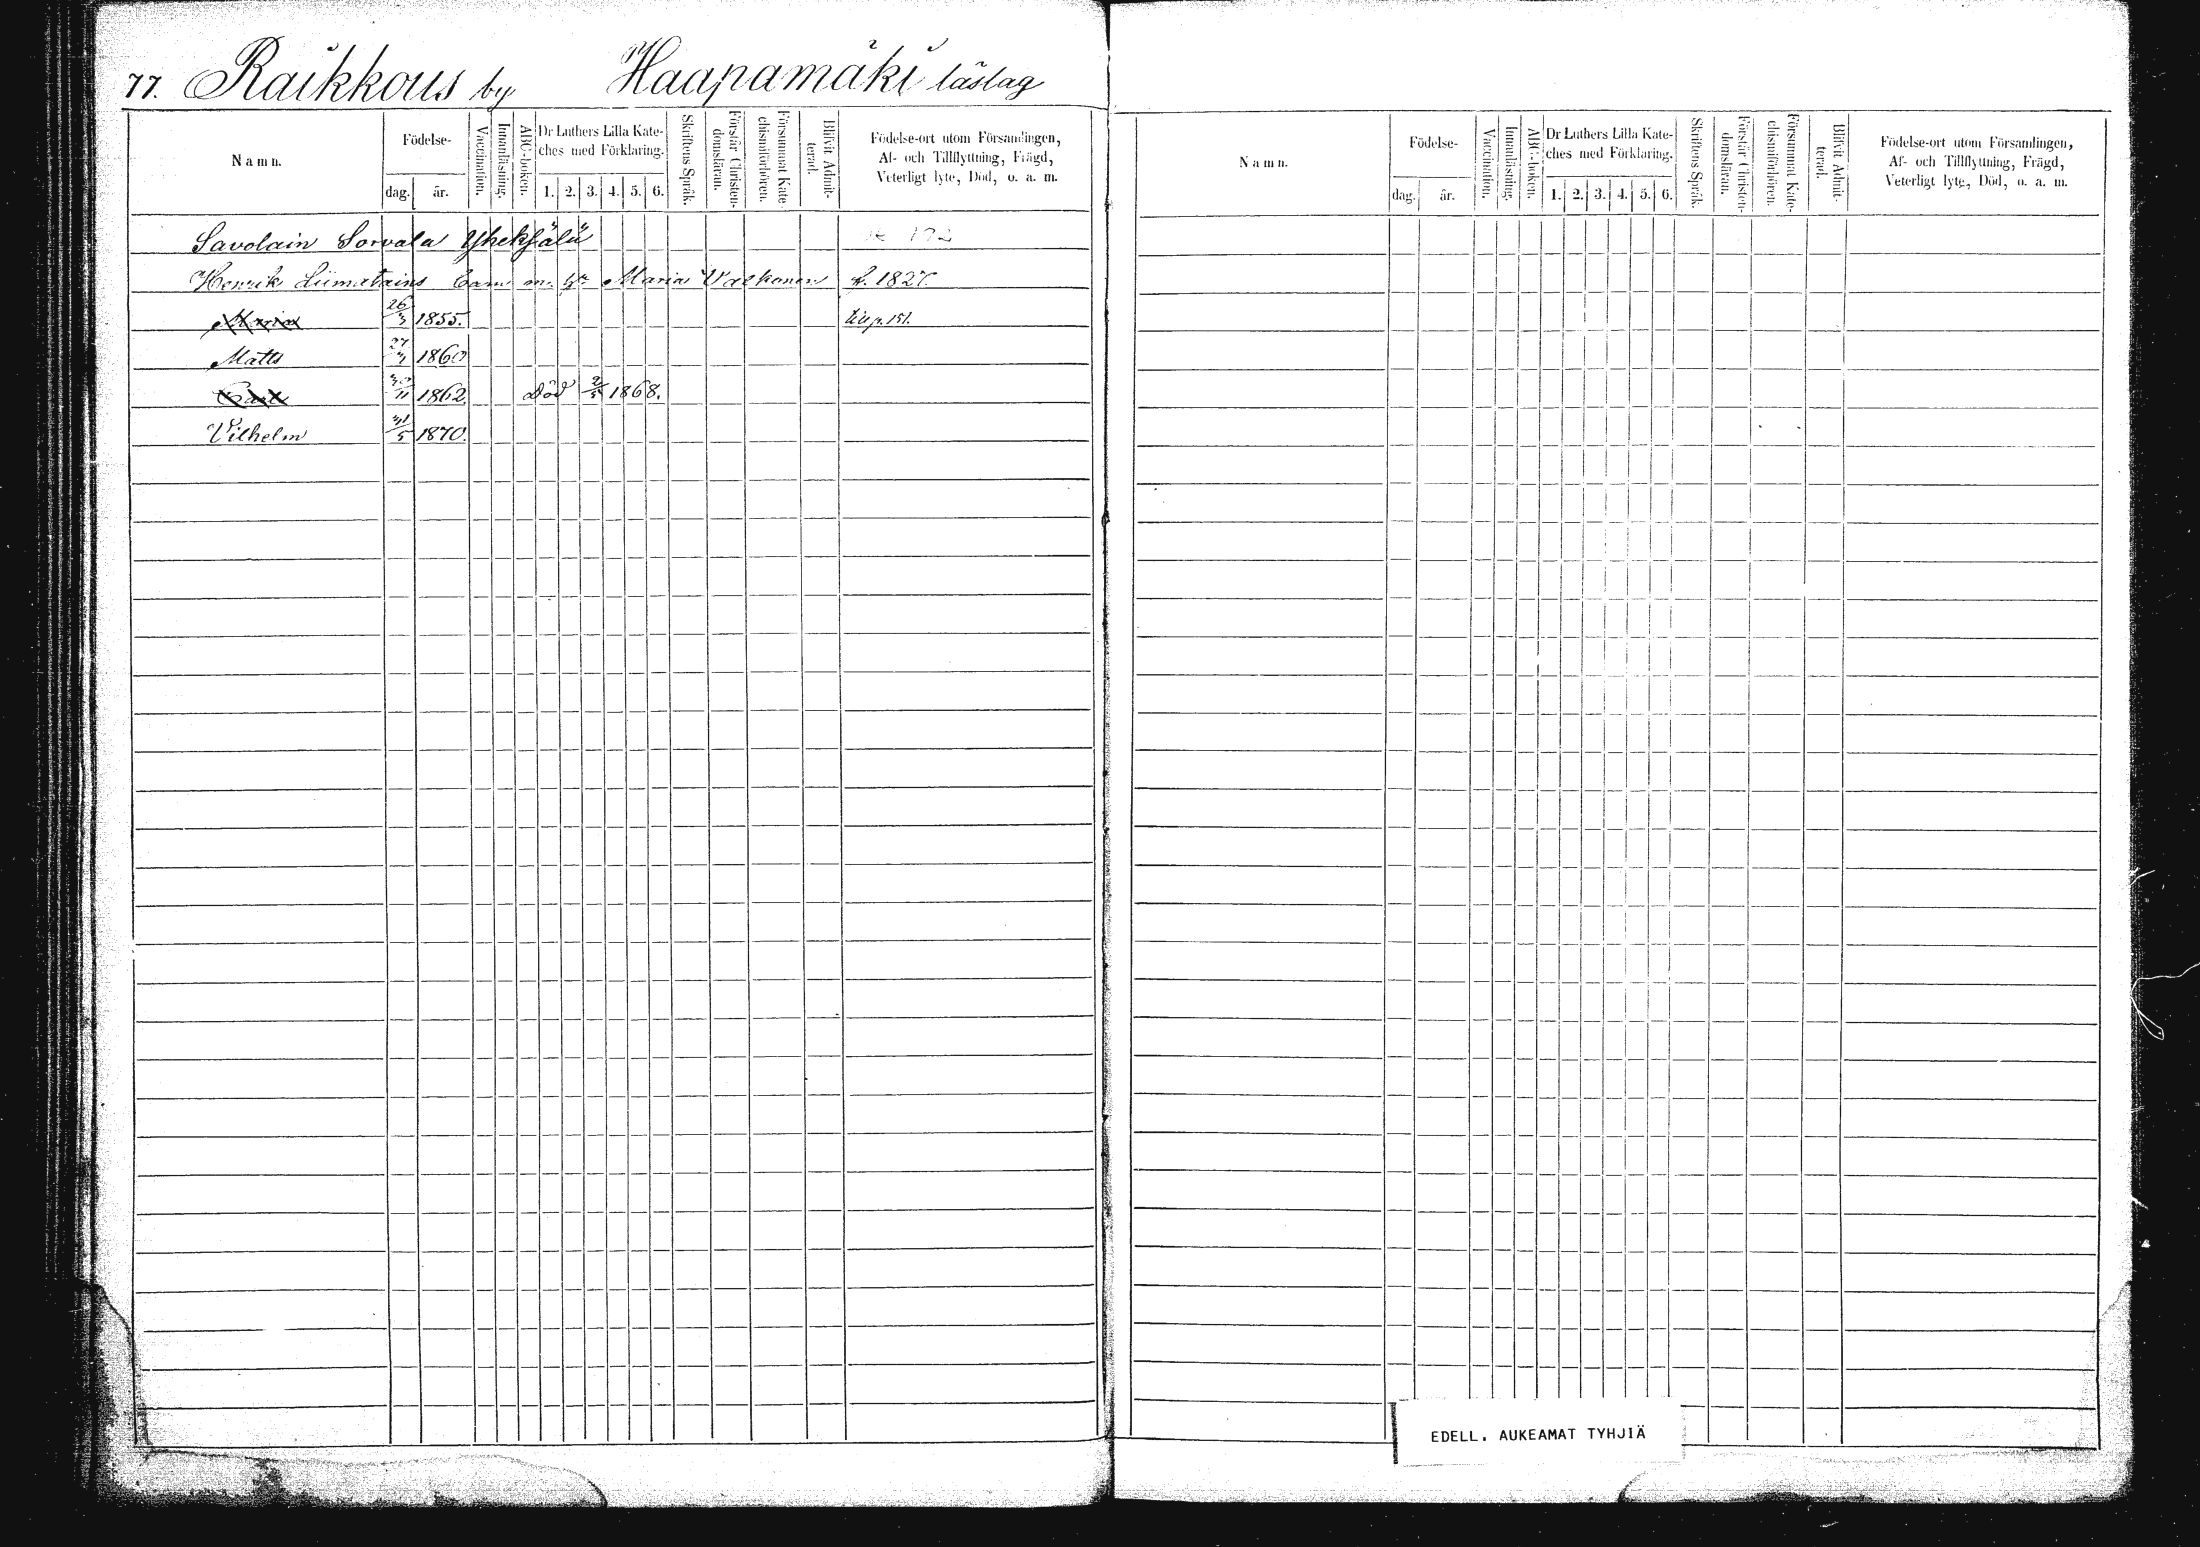 77. Raikkous by Haapamäki läslag
Namn.
Födelse-
dag.
år.
Vaccination.
Innanläsning.
ABC-boken.
Dr Luthers Lilla Kate-
ches med Förklaring.
1. 2. 3. 4. 5. 6.
Skriftens Språk.
Förstår Christen-
domsläran.
Försummat Kate-
chismiförhören.
Blifvit Admit-
terad.
Födelse-ort utom Församlingen,
Af- och Tillflyttning, Frägd,
Veterligt lyte, Död, o. a. m.
Savolain Sorvala
Henrik Liimatains Barn m. Maria Valkonen f. 1827.
Maria 26/3 1855. till p. 151.
Matts 1860
Carl 1862 död 1868.
Vilhelm 31/5 1870.
Namn.
Födelse-
dag.
år.
Vaccination.
Innanläsning.
ABC-boken.
Dr Luthers Lilla Kate-
ches med Förklaring.
1. 2. 3. 4. 5. 6.
Skriftens Språk.
Förstår Christen-
domsläran.
Försummat Kate-
chismiförhören.
Blifvit Admit-
terad.
Födelse-ort utom Församlingen,
Af- och Tillflyttning, Frägd,
Veterligt lyte, Död, o. a. m.
EDELL. AUKEAMAT TYHJIÄ